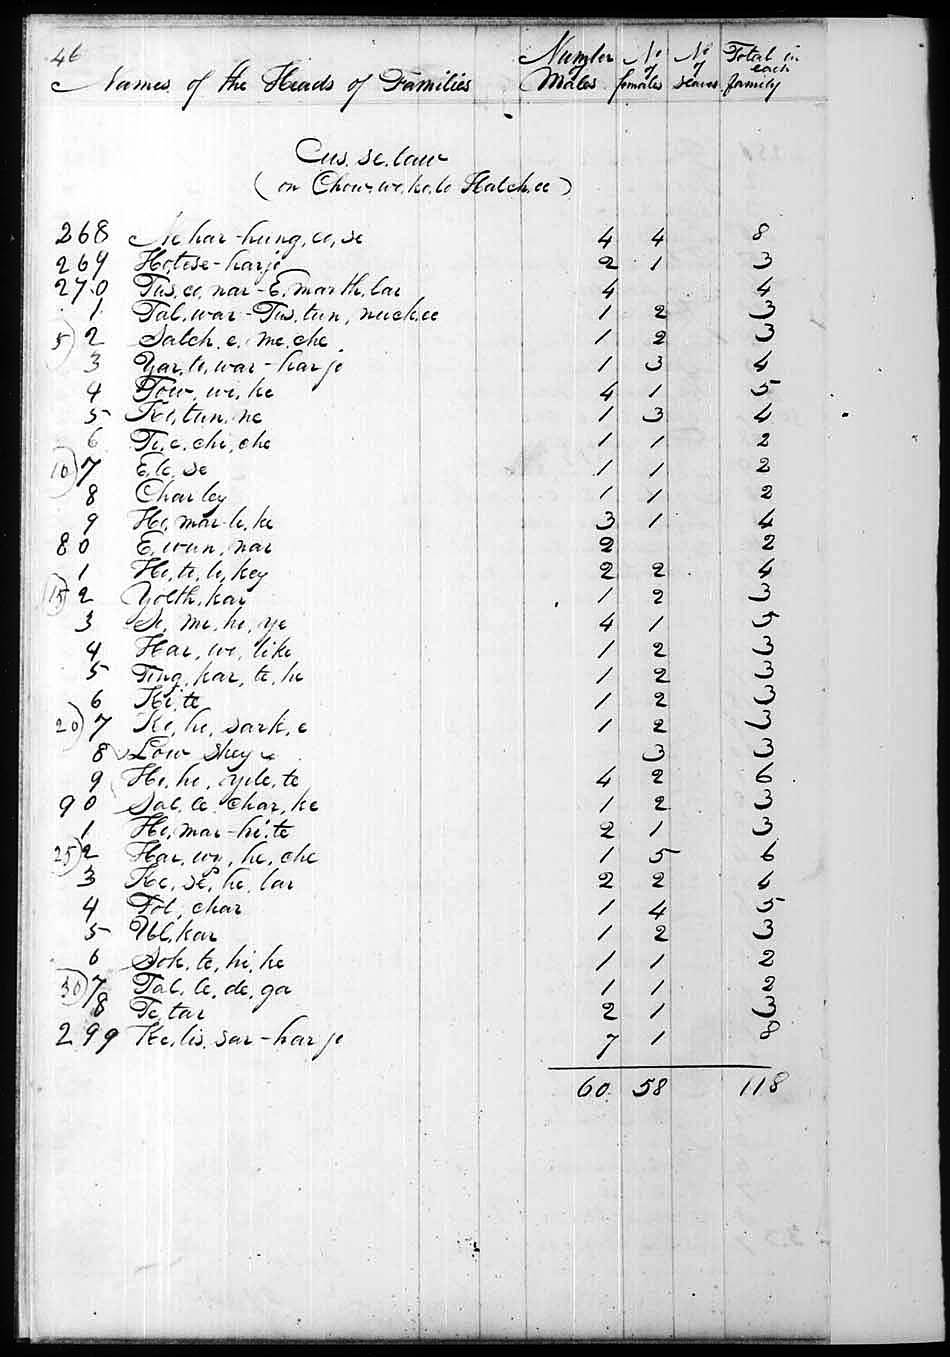 46
Names of the Heads of Families Number of Males No of females No of Slaves Total in each family
Cus.se.taw
(on Chow.wo.ko.lo Hatch.ee)
268 Ne har-hung,co,se 4 4 8
269 Hotese-harjo 2 1 3
270 Tus,ce,nar-E,marth,lar 4 4
1 Tal,war-Tus,tun,nuck,ee 1 2 3
5) 2 Salch,e,me,che 1 2 3
3 Yar,te,war-harjo 1 3 4
4 Tow,wi,ke 4 1 5
5 Ke,tun,ne 1 3 4
6 Ti,e,chi,che 1 1 2
10) 7 E,le,se 1 1 2
8 Charley 1 1 2
9 Ho,mar-le,ke 3 1 4
80 E,wun,nar 2 2
1 Ho,te,le,key 2 2 4
15) 2 Yolth,kar 1 2 3
3 Si,me,ho,ye 4 1 5
4 Har,wo,like 1 2 3
5 Ting,kar,te,he 1 2 3
6 Ki,te 1 2 3
20) 7 Ke,he,sark,e 1 2 3
8 Low Skeys 3 3
9 He,he,yile,te 4 2 6
90 Sal,le char,ke 1 2 3
1 He,mar-hi,te 2 1 3
25) 2 Har,wy,he,che 1 5 6
3 Ke,se,he,lar 2 2 4
4 Fot,char 1 4 5
5 Ul,kar 1 2 3
6 Sok,te,hi,ke 1 1 2
30) 7 Tal,le,de,ga 1 1 2
8 Te,tar 2 1 3
299 Ke,lis,sar-harjo 7 1 8
60 58 118